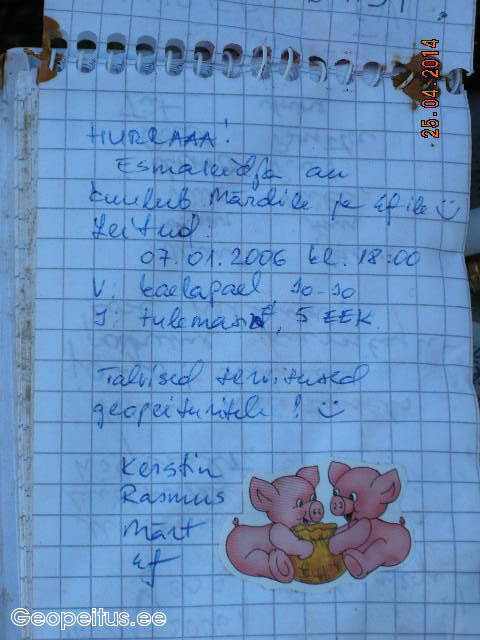 25.04.2014
HURRAAA!
Esmaleidja au
kuulub Mardile ja Efile
Leitud:
07.01.2006 kl. 18:00
V: kaelapael 10-10
J: tulemasin, 5 EEK.
Talvised tervitused
geopeituritele!
Kerstin
Rasmus
Märt
Ef
Geopeitus.ee